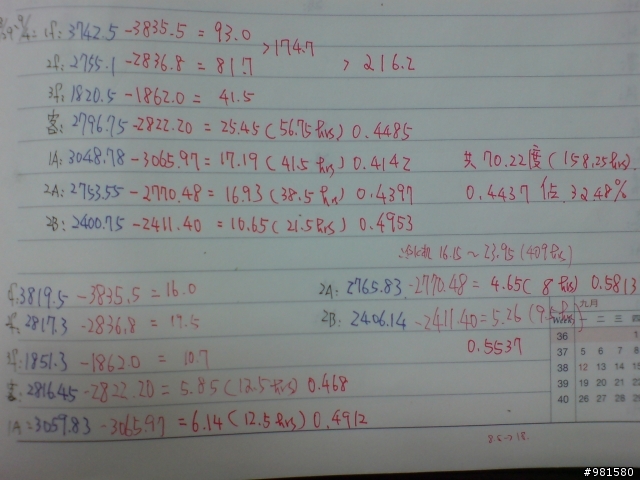 1f: 3742.5 -3835.5 = 93.0 >174.7
2f: 2755.1 -2836.8 = 81.7 > 216.2
3f: 1820.5 -1862.0 = 41.5
客: 2796.75 -2822.20 = 25.45 (56.75 hrs) 0.4485
1A: 3048.78 -3065.97 = 17.19 (41.5 hrs) 0.4142 共 70.22度 (158.25 hrs)
2A: 2753.55 -2770.48 = 16.93 (38.5 hrs) 0.4397 0.4437 佔 32.48%
2B: 2400.75 -2411.40 = 10.65 (21.5 hrs) 0.4953
16.15 ~ 23.95 (409 hrs)
3819.5 -3835.5 = 16.0 2A: 2765.83 -2770.48 = 4.65 (8 hrs) 0.5813
2817.3 -2836.8 = 19.5 2B: 2406.14 -2411.40 = 5.26 (9.5
1851.3 -1862.0 = 10.7 0.5537
客: 2816.45 -2822.20 = 5.85 (12.5 hrs) 0.468
1A: 3059.83 -3065.97 = 6.14 (12.5 hrs) 0.4912
九月
Week 一 二 三 四
36 1
37 5 6 7 8
38 12 13 14 15
39 19 20 21 22
40 26 27 28 29
#981580